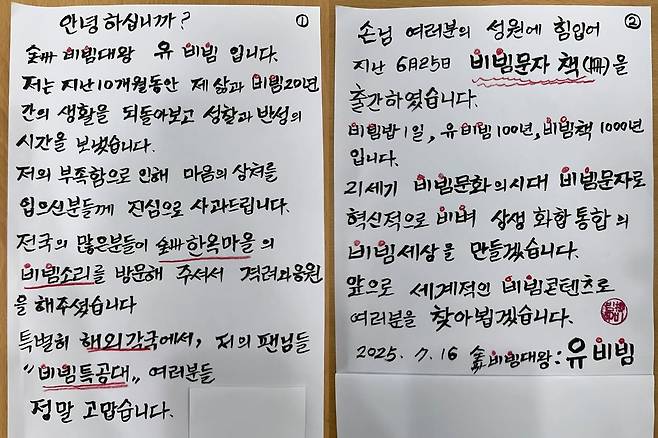 안녕하십니까?
①
全州 비빔대왕 유비빔 입니다.
저는 지난 10개월동안 제 삶과 비빔20년
간의 생활을 되돌아보고 성찰과 반성의
시간을 보냈습니다.
저의 부족함으로 인해 마음의 상처를
입으신분들께 진심으로 사과드립니다.
전국의 많은분들이 全州한옥마을의
비빔소리를 방문해 주셔서 격려와응원
을 해주셨습니다
특별히 해외각국에서, 저의 팬님들
"비빔특공대" 여러분들
정말 고맙습니다.
손님 여러분의 성원에 힘입어
②
지난 6月25日 비빔문자 책(冊)을
출간하였습니다.
비빔밥1일, 유비빔100년, 비빔책 1000年
입니다.
21세기 비빔문화의시대 비빔문자로
혁신적으로 비벼 상생 화합 통합의
비빔세상을 만들겠습니다.
앞으로 세계적인 비빔콘텐츠로
여러분을 찾아뵙겠습니다.
2025. 7. 16 비빔대왕: 유비빔